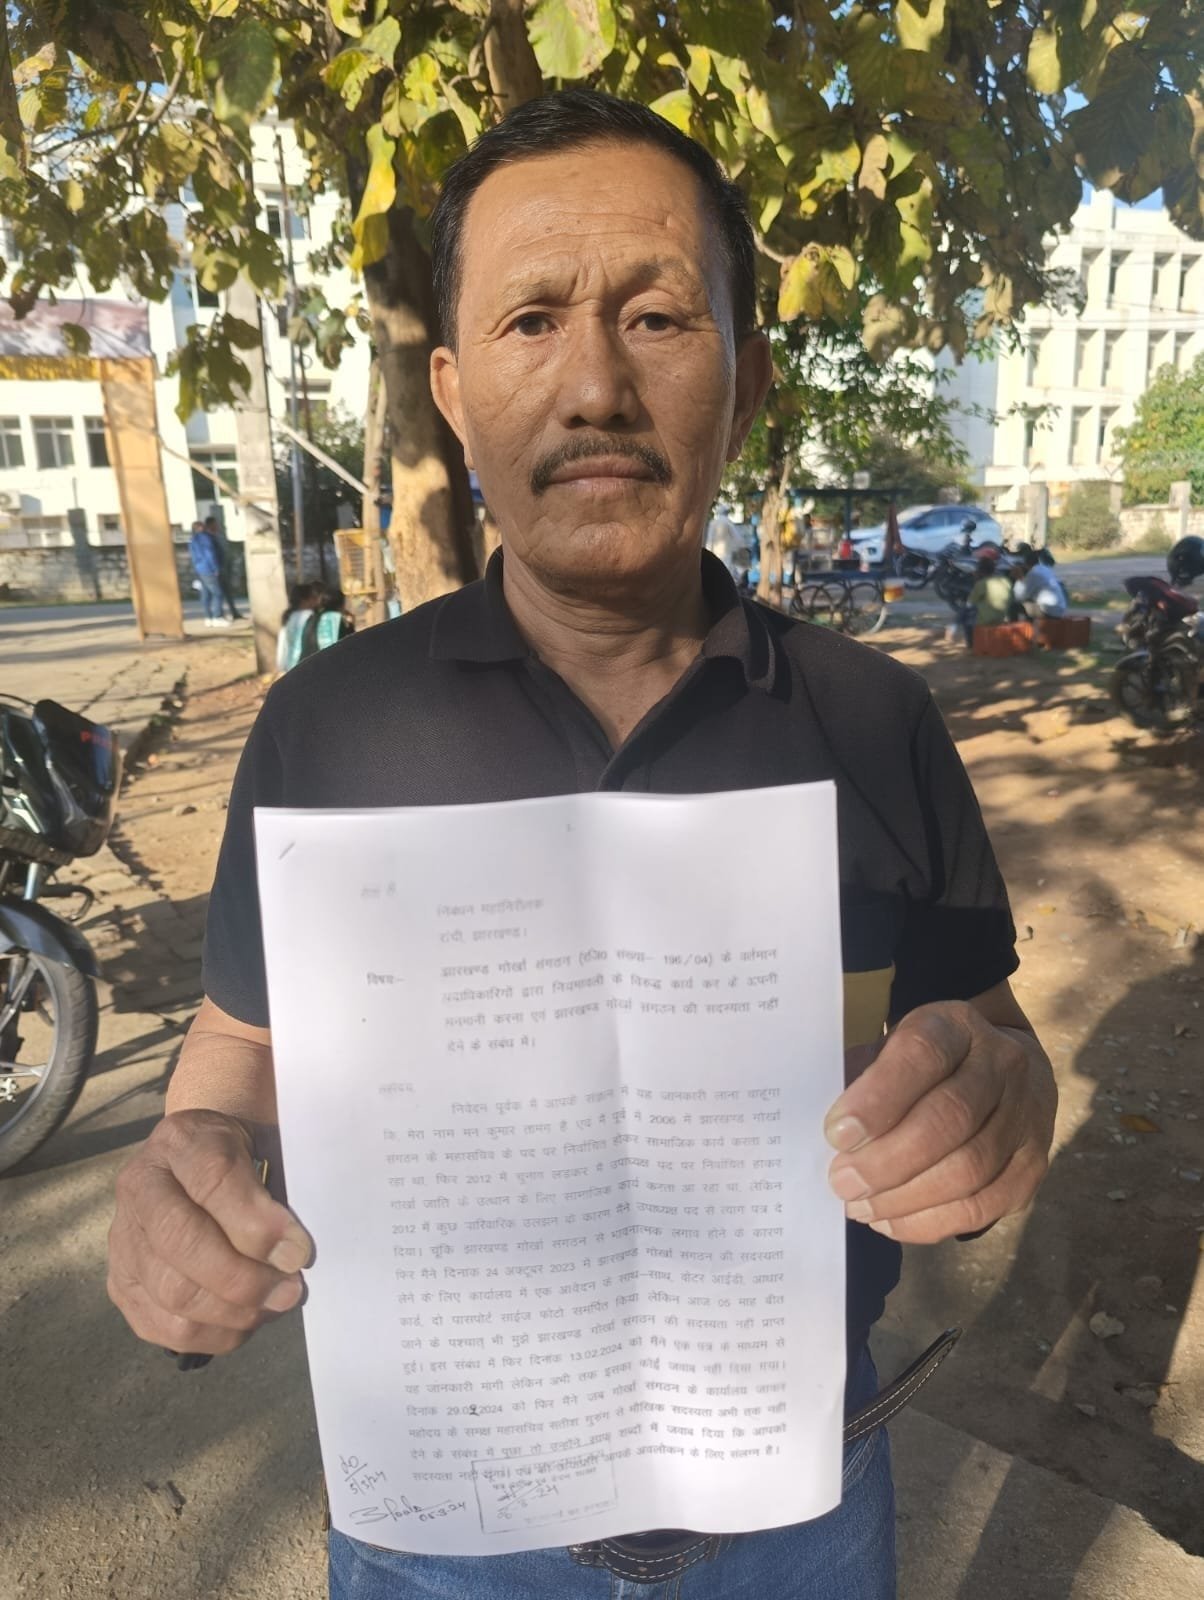 सेवा में,
निबंधन महानिरीक्षक
रांची, झारखण्ड।
विषय:- झारखण्ड गोर्खा संगठन (रजि0 संख्या– 196/04) के वर्तमान
पदाधिकारियों द्वारा नियमावली के विरुद्ध कार्य कर के अपनी
मनमानी करना एवं झारखण्ड गोर्खा संगठन की सदस्यता नहीं
देने के संबंध में।
महोदय,
निवेदन पूर्वक मैं आपके संज्ञान में यह जानकारी लाना चाहूंगा
कि, मेरा नाम मन कुमार तामंग है एवं मैं पूर्व में 2006 में झारखण्ड गोर्खा
संगठन के महासचिव के पद पर निर्वाचित होकर सामाजिक कार्य करता आ
रहा था, फिर 2012 में चुनाव लड़कर मैं उपाध्यक्ष पद पर निर्वाचित होकर
गोर्खा जाति के उत्थान के लिए सामाजिक कार्य करता आ रहा था, लेकिन
2012 में कुछ पारिवारिक उलझन के कारण मैंने उपाध्यक्ष पद से त्याग पत्र दे
दिया। चूंकि झारखण्ड गोर्खा संगठन से भावनात्मक लगाव होने के कारण
फिर मैंने दिनांक 24 अक्टूबर 2023 में झारखण्ड गोर्खा संगठन की सदस्यता
लेने के लिए कार्यालय में एक आवेदन के साथ–साथ, वोटर आईडी, आधार
कार्ड, दो पासपोर्ट साईज फोटो समर्पित किया लेकिन आज 05 माह बीत
जाने के पश्चात् भी मुझे झारखण्ड गोर्खा संगठन की सदस्यता नहीं प्राप्त
हुई। इस संबंध में फिर दिनांक 13.02.2024 को मैंने एक पत्र के माध्यम से
यह जानकारी मांगी लेकिन अभी तक इसका कोई जवाब नहीं दिया गया।
दिनांक 29.02.2024 को फिर मैंने जब गोर्खा संगठन के कार्यालय जाकर
महोदय के समक्ष महासचिव सतीश गुरुंग से मौखिक सदस्यता अभी तक नहीं
देने के संबंध में पूछा तो उन्होंने साफ शब्दों में जवाब दिया कि आपको
सदस्यता नहीं दूंगा। पत्र की आपके अवलोकन के लिए संलग्न है।
5/3/24
05.3.24